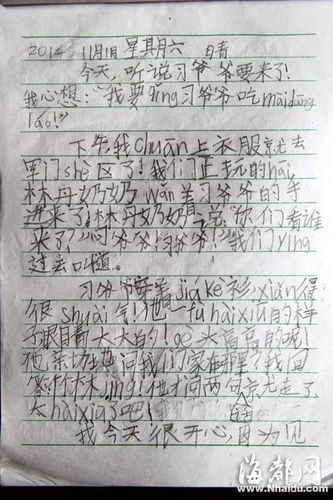 2014 11月1日 星其月六 晴
今天,听说习爷爷要来了!
我心想:“我要qǐng习爷爷吃màidāng
láo!”
下午我chuān上衣服就去
军门shè区了!我们正玩的hāi,
林丹奶奶wǎn着习爷爷的手
进来了!林丹奶奶说:你们看谁
来了?“习爷爷!习爷爷!”我们yíng
过去叫道。
习爷爷穿着jiākè衫,xiǎn得
很shuài气!他一fù hàixiū的样
子,眼睛大大的!gè头高高的呢!
他亲切地问我们家在哪里?我回
答
就走了
太hàixiū了吧!
我今天很开心,因为见
海都网
www.Nhaidu.com